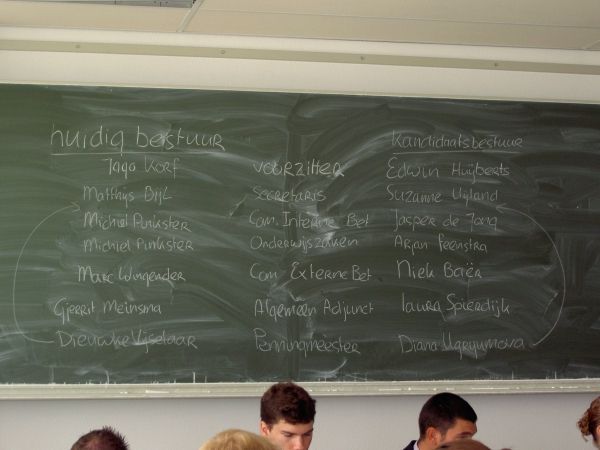 huidig bestuur kandidaatsbestuur
Jago Korf voorzitter Edwin Huijbents
Matthijs Bijl secretaris Suzanne Uijland
Michiel Punkster Com. Interne Bet Jasper de Jong
Michiel Punkster Onderwijszaken Arjan Feenstra
Marc Wingender Com Externe Bet Niek Baër
Gjerrit Meinsma Algemeen Adjunct Laura Spierdijk
Dieuwke Vijselaar Penningmeester Diana Ugryumova